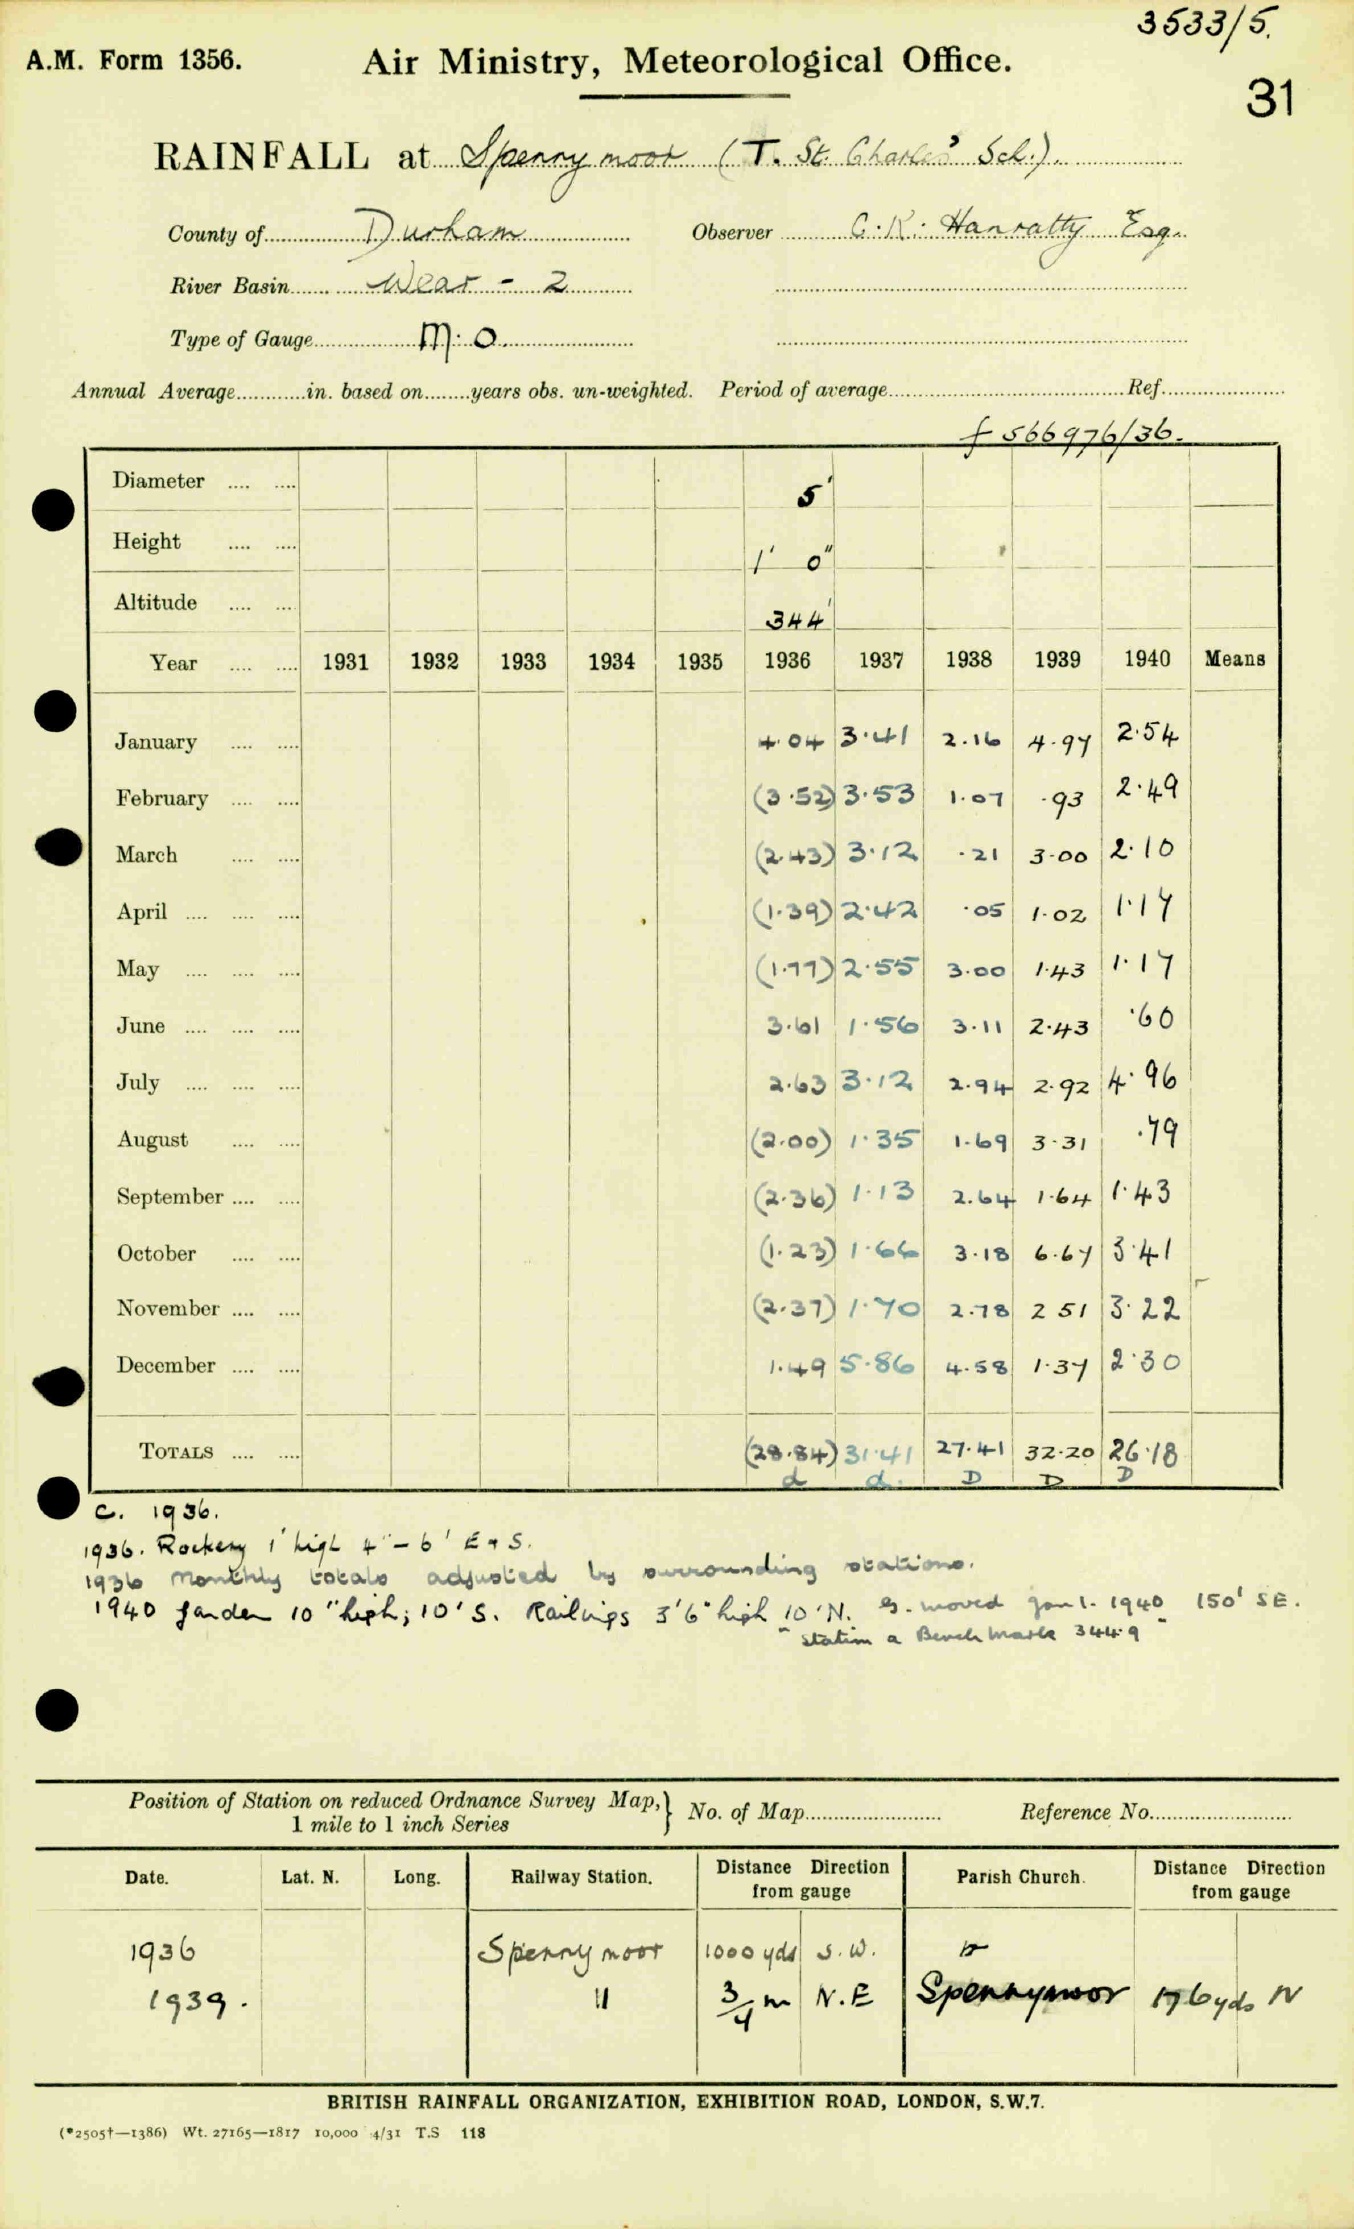 3533/5.
A.M. Form 1356. Air Ministry, Meteorological Office.
31
RAINFALL at Spennymoor (T. St. Charles' Sch.)
County of Durham Observer C. K. Hanratty Esq.
River Basin Wear - 2
Type of Gauge M.O.
Annual Average in. based on years obs. un-weighted. Period of average Ref.
f 566976/36.
Diameter 5'
Height 1' 0"
Altitude 344'
Year 1931 1932 1933 1934 1935 1936 1937 1938 1939 1940 Means
January 4.04 3.41 2.16 4.97 2.54
February (3.52) 3.53 1.07 .93 2.49
March (2.43) 3.12 .21 3.00 2.10
April (1.39) 2.42 .05 1.02 1.17
May (1.77) 2.55 3.00 1.43 1.17
June 3.61 1.56 3.11 2.43 .60
July 2.63 3.12 2.94 2.92 4.96
August (2.00) 1.35 1.69 3.31 .79
September (2.36) 1.13 2.64 1.64 1.43
October (1.23) 1.66 3.18 6.67 3.41
November (2.37) 1.70 2.78 2 51 3.22
December 1.49 5.86 4.58 1.37 2.30
TOTALS (28.84) 31.41 27.41 32.20 26.18
d d. D D D
C. 1936.
1936. Rockery 1' high 4' - 6' E & S.
1936 Monthly totals adjusted by surrounding stations.
1940 Garden 10" high; 10' S. Railings 3'6" high 10' N. G. moved Jan 1. 1940 150' SE.
Station a Bench Mark 344.9
Position of Station on reduced Ordnance Survey Map, } No. of Map Reference No.
1 mile to 1 inch Series
Date. Lat. N. Long. Railway Station. Distance Direction from gauge Parish Church. Distance Direction from gauge
1936 Spennymoor 1000 yds S.W.
1939. " 3/4 m N.E Spennymoor 176 yds N
BRITISH RAINFALL ORGANIZATION, EXHIBITION ROAD, LONDON, S.W.7.
(*2505†—1386) Wt. 27165—1817 10,000 4/31 T.S 118